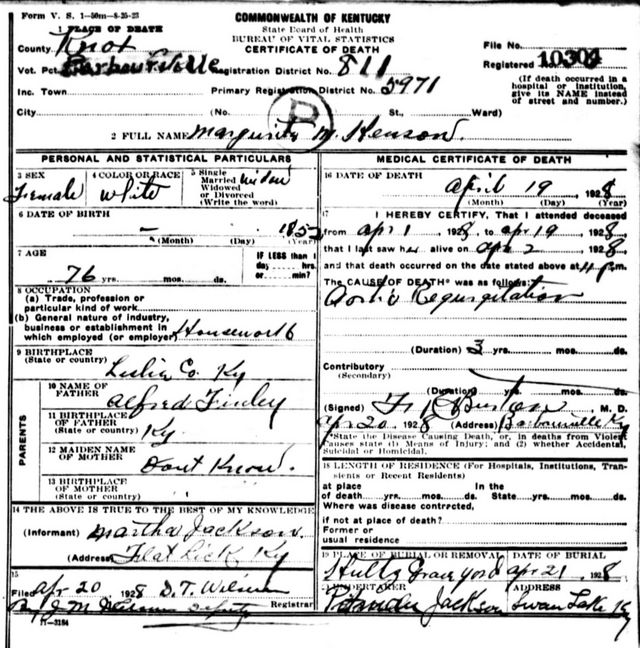 Form V. S. 1-50m-8-25-23
COMMONWEALTH OF KENTUCKY
State Board of Health
BUREAU OF VITAL STATISTICS
CERTIFICATE OF DEATH
1 PLACE OF DEATH
County Knox
Vot. Pct. Barbourville
Registration District No. 811
File No.
Registered 10304
Inc. Town
Primary Registration District No. 5971
(If death occurred in a hospital or institution, give its NAME instead of street and number.)
City (No. St., Ward)
B
2 FULL NAME M. Henson.
PERSONAL AND STATISTICAL PARTICULARS
3 SEX
Female
4 COLOR OR RACE
White
5 Single Married Widowed or Divorced (Write the word)
6 DATE OF BIRTH
- 1852
(Month) (Day) (Year)
7 AGE
76 yrs. mos. ds.
IF LESS than 1 day hrs. or min.?
8 OCCUPATION
(a) Trade, profession or particular kind of work
(b) General nature of industry, business or establishment in which employed (or employer)
9 BIRTHPLACE
(State or country) Leslie Co. Ky
PARENTS
10 NAME OF FATHER Alfred Finley
11 BIRTHPLACE OF FATHER
(State or country) Ky.
12 MAIDEN NAME OF MOTHER Dont Know.
13 BIRTHPLACE OF MOTHER
(State or country)
14 THE ABOVE IS TRUE TO THE BEST OF MY KNOWLEDGE
(Informant) Martha Jackson.
(Address) Flat Lick Ky
15
Filed Apr 20 1928 D.T.
Deputy Registrar
11-3184
MEDICAL CERTIFICATE OF DEATH
16 DATE OF DEATH
April 19 1928
(Month) (Day) (Year)
17 I HEREBY CERTIFY, That I attended deceased
from Apr 1 1928, to Apr 19 1928
that I last saw her alive on Apr 2 1928
and that death occurred on the date stated above at m.
The CAUSE OF DEATH* was as follows:
Aortic Regurgitation
(Duration) 3 yrs. mos. ds.
Contributory
(Secondary)
(Duration) yrs. mos. ds.
(Signed) Burton M. D.
Apr 20 1928 (Address) Barbourville Ky
*State the Disease Causing Death, or, in deaths from Violent Causes state (1) Means of Injury; and (2) whether Accidental, Suicidal or Homicidal.
18 LENGTH OF RESIDENCE (For Hospitals, Institutions, Transients or Recent Residents)
at place of death yrs. mos. ds.
In the State yrs. mos. ds.
Where was disease contracted, if not at place of death?
Former or usual residence
19 PLACE OF BURIAL OR REMOVAL
DATE OF BURIAL
Grave yard Apr 21 1928
UNDERTAKER
ADDRESS
Jackson Swan Lake Ky